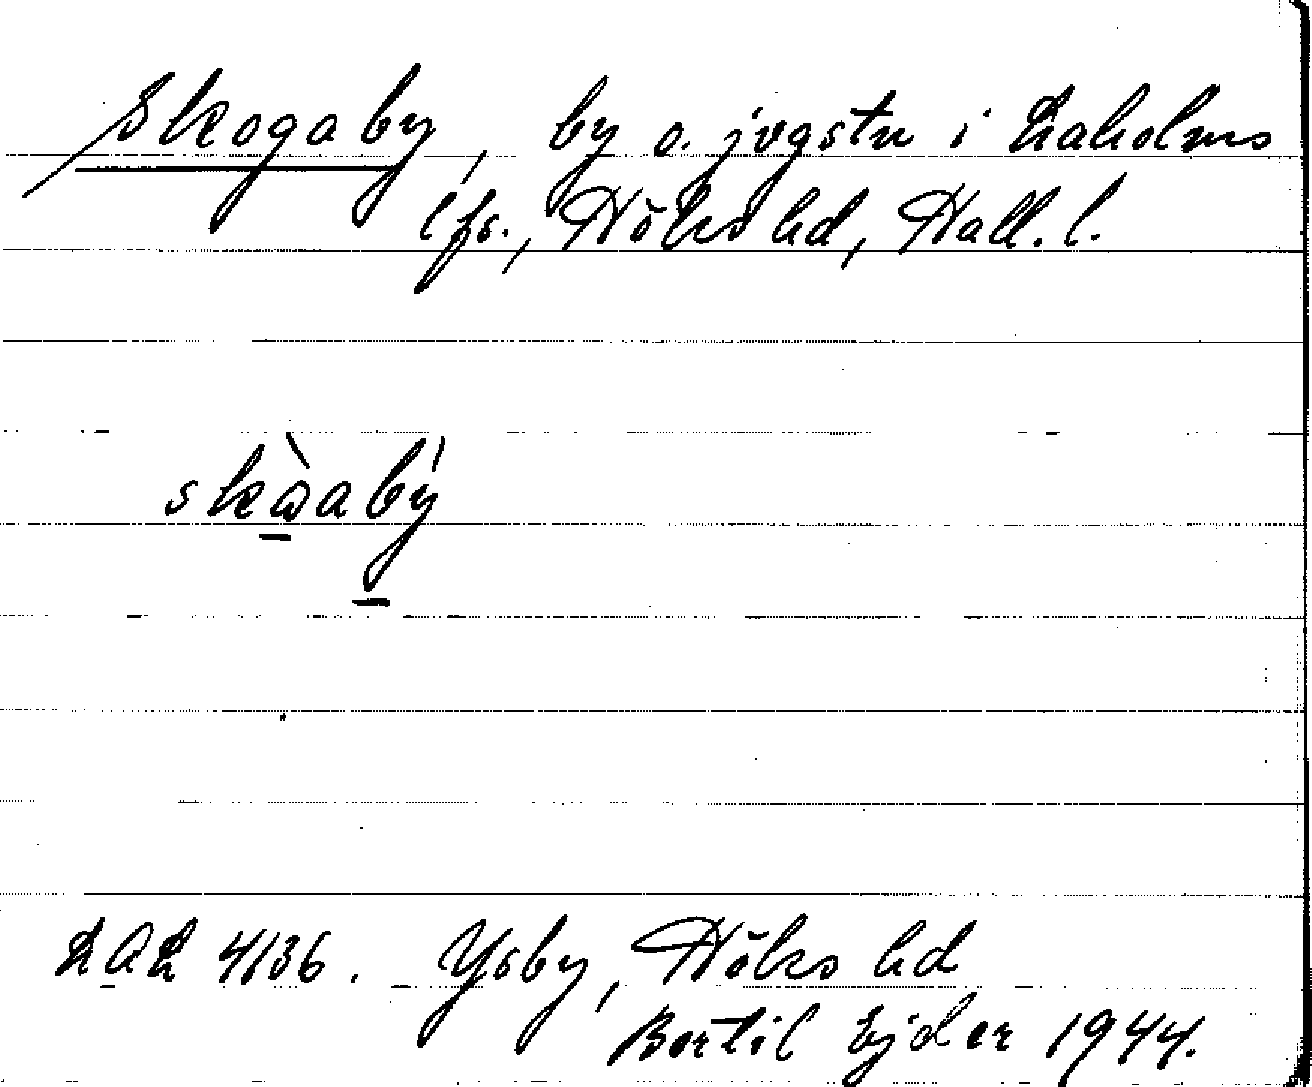 Skogaby, by o. jvgstn i Laholms
lfs., Höks hd, Hall. l.
skɷ̀abẏ
LAL 4136. Ysby, Höks hd
Bertil Ejder 1944.